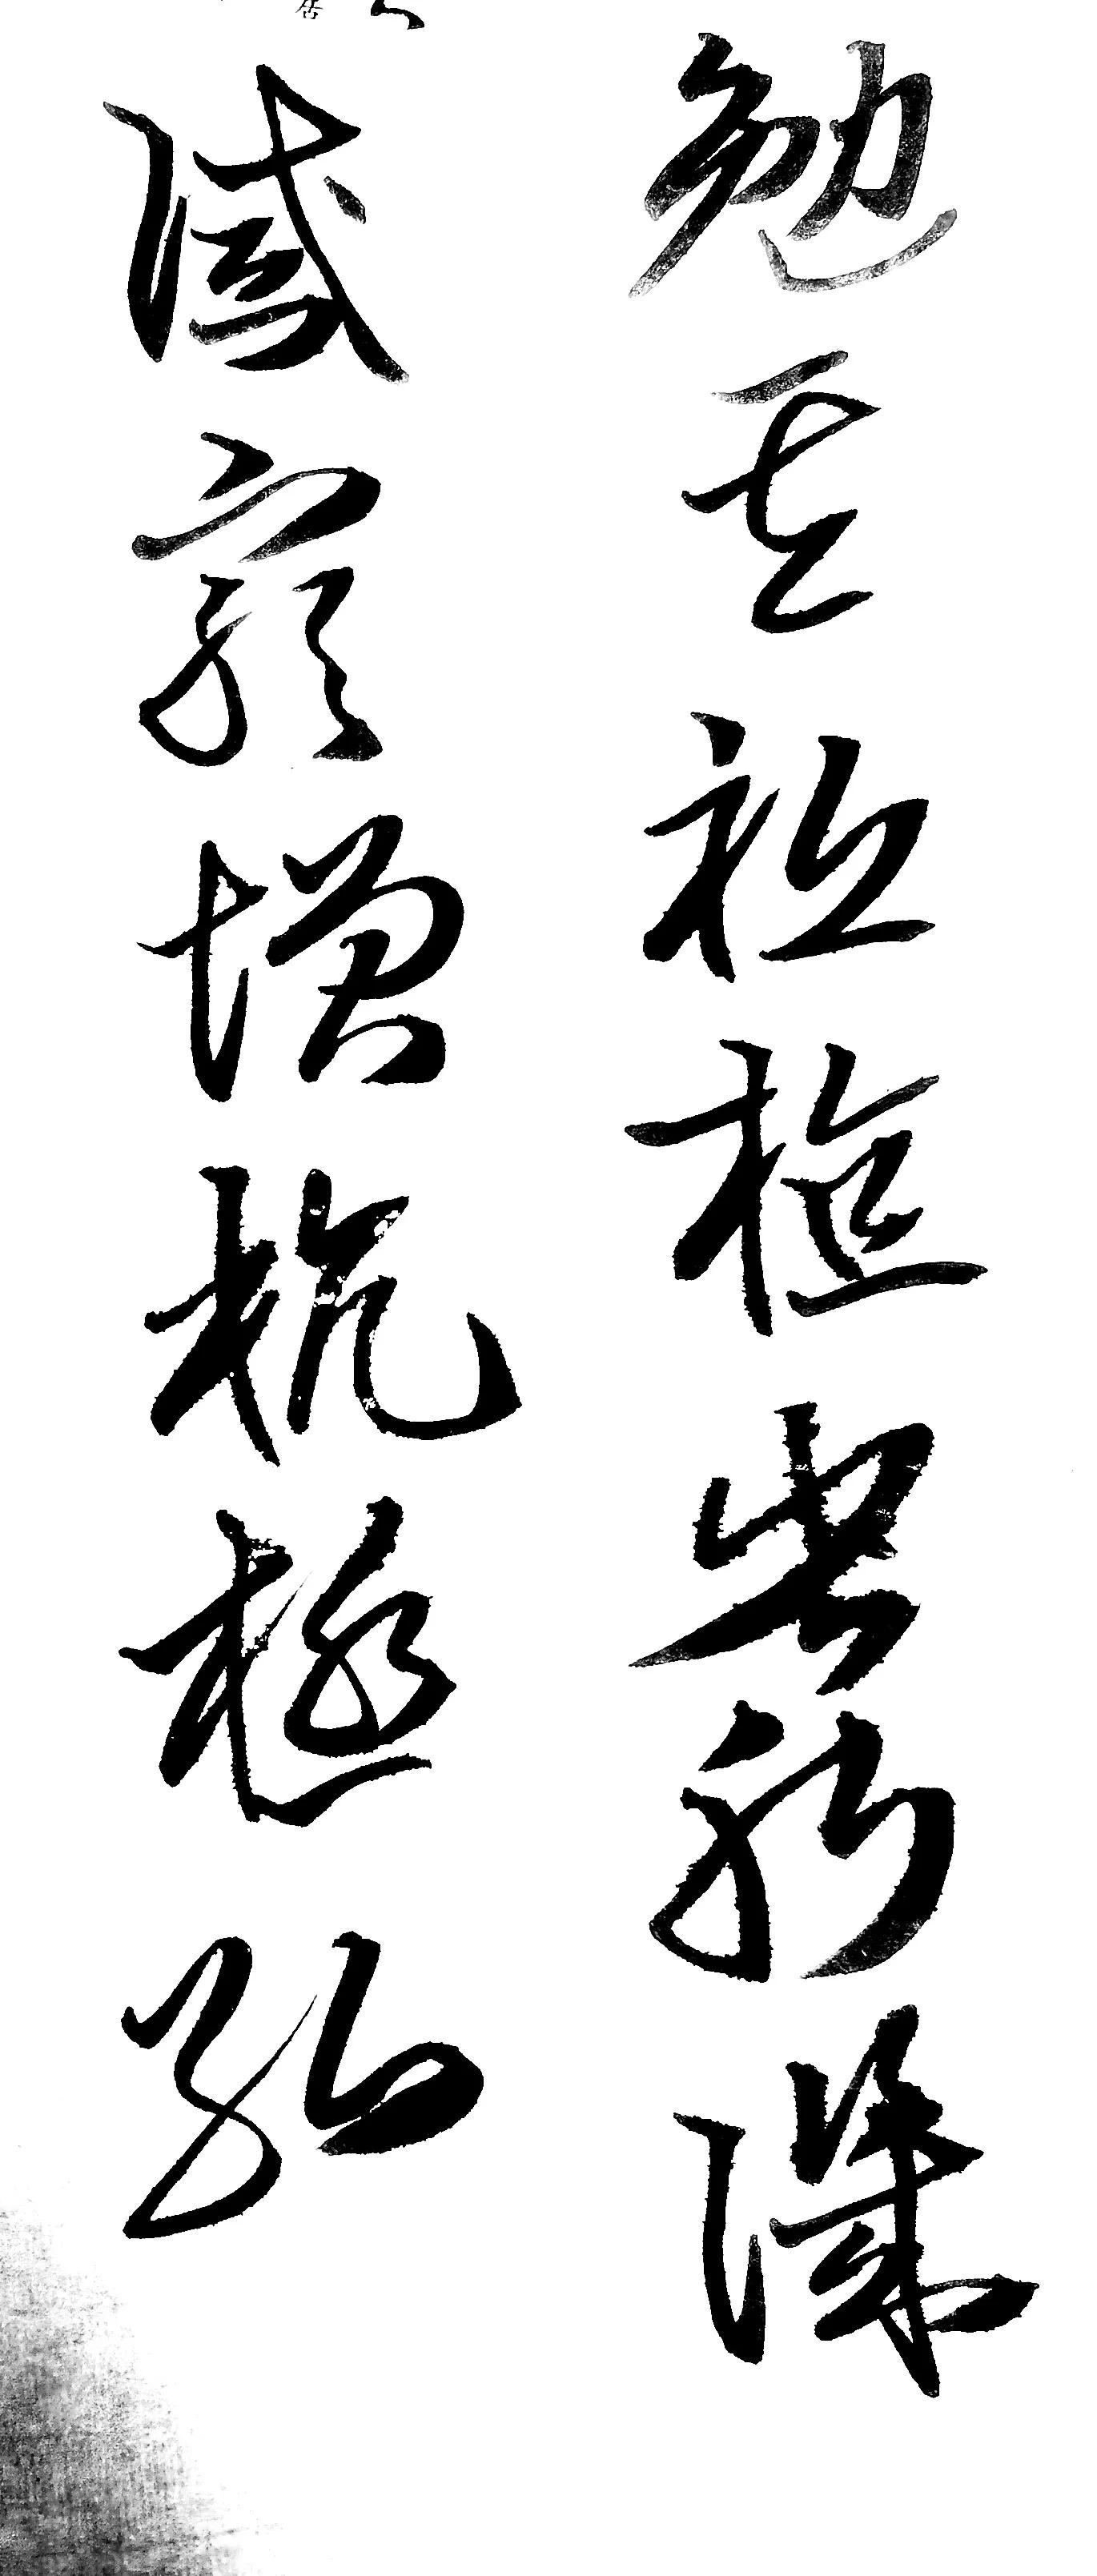 勉其祗植省躬譏
誡寵增抗極殆